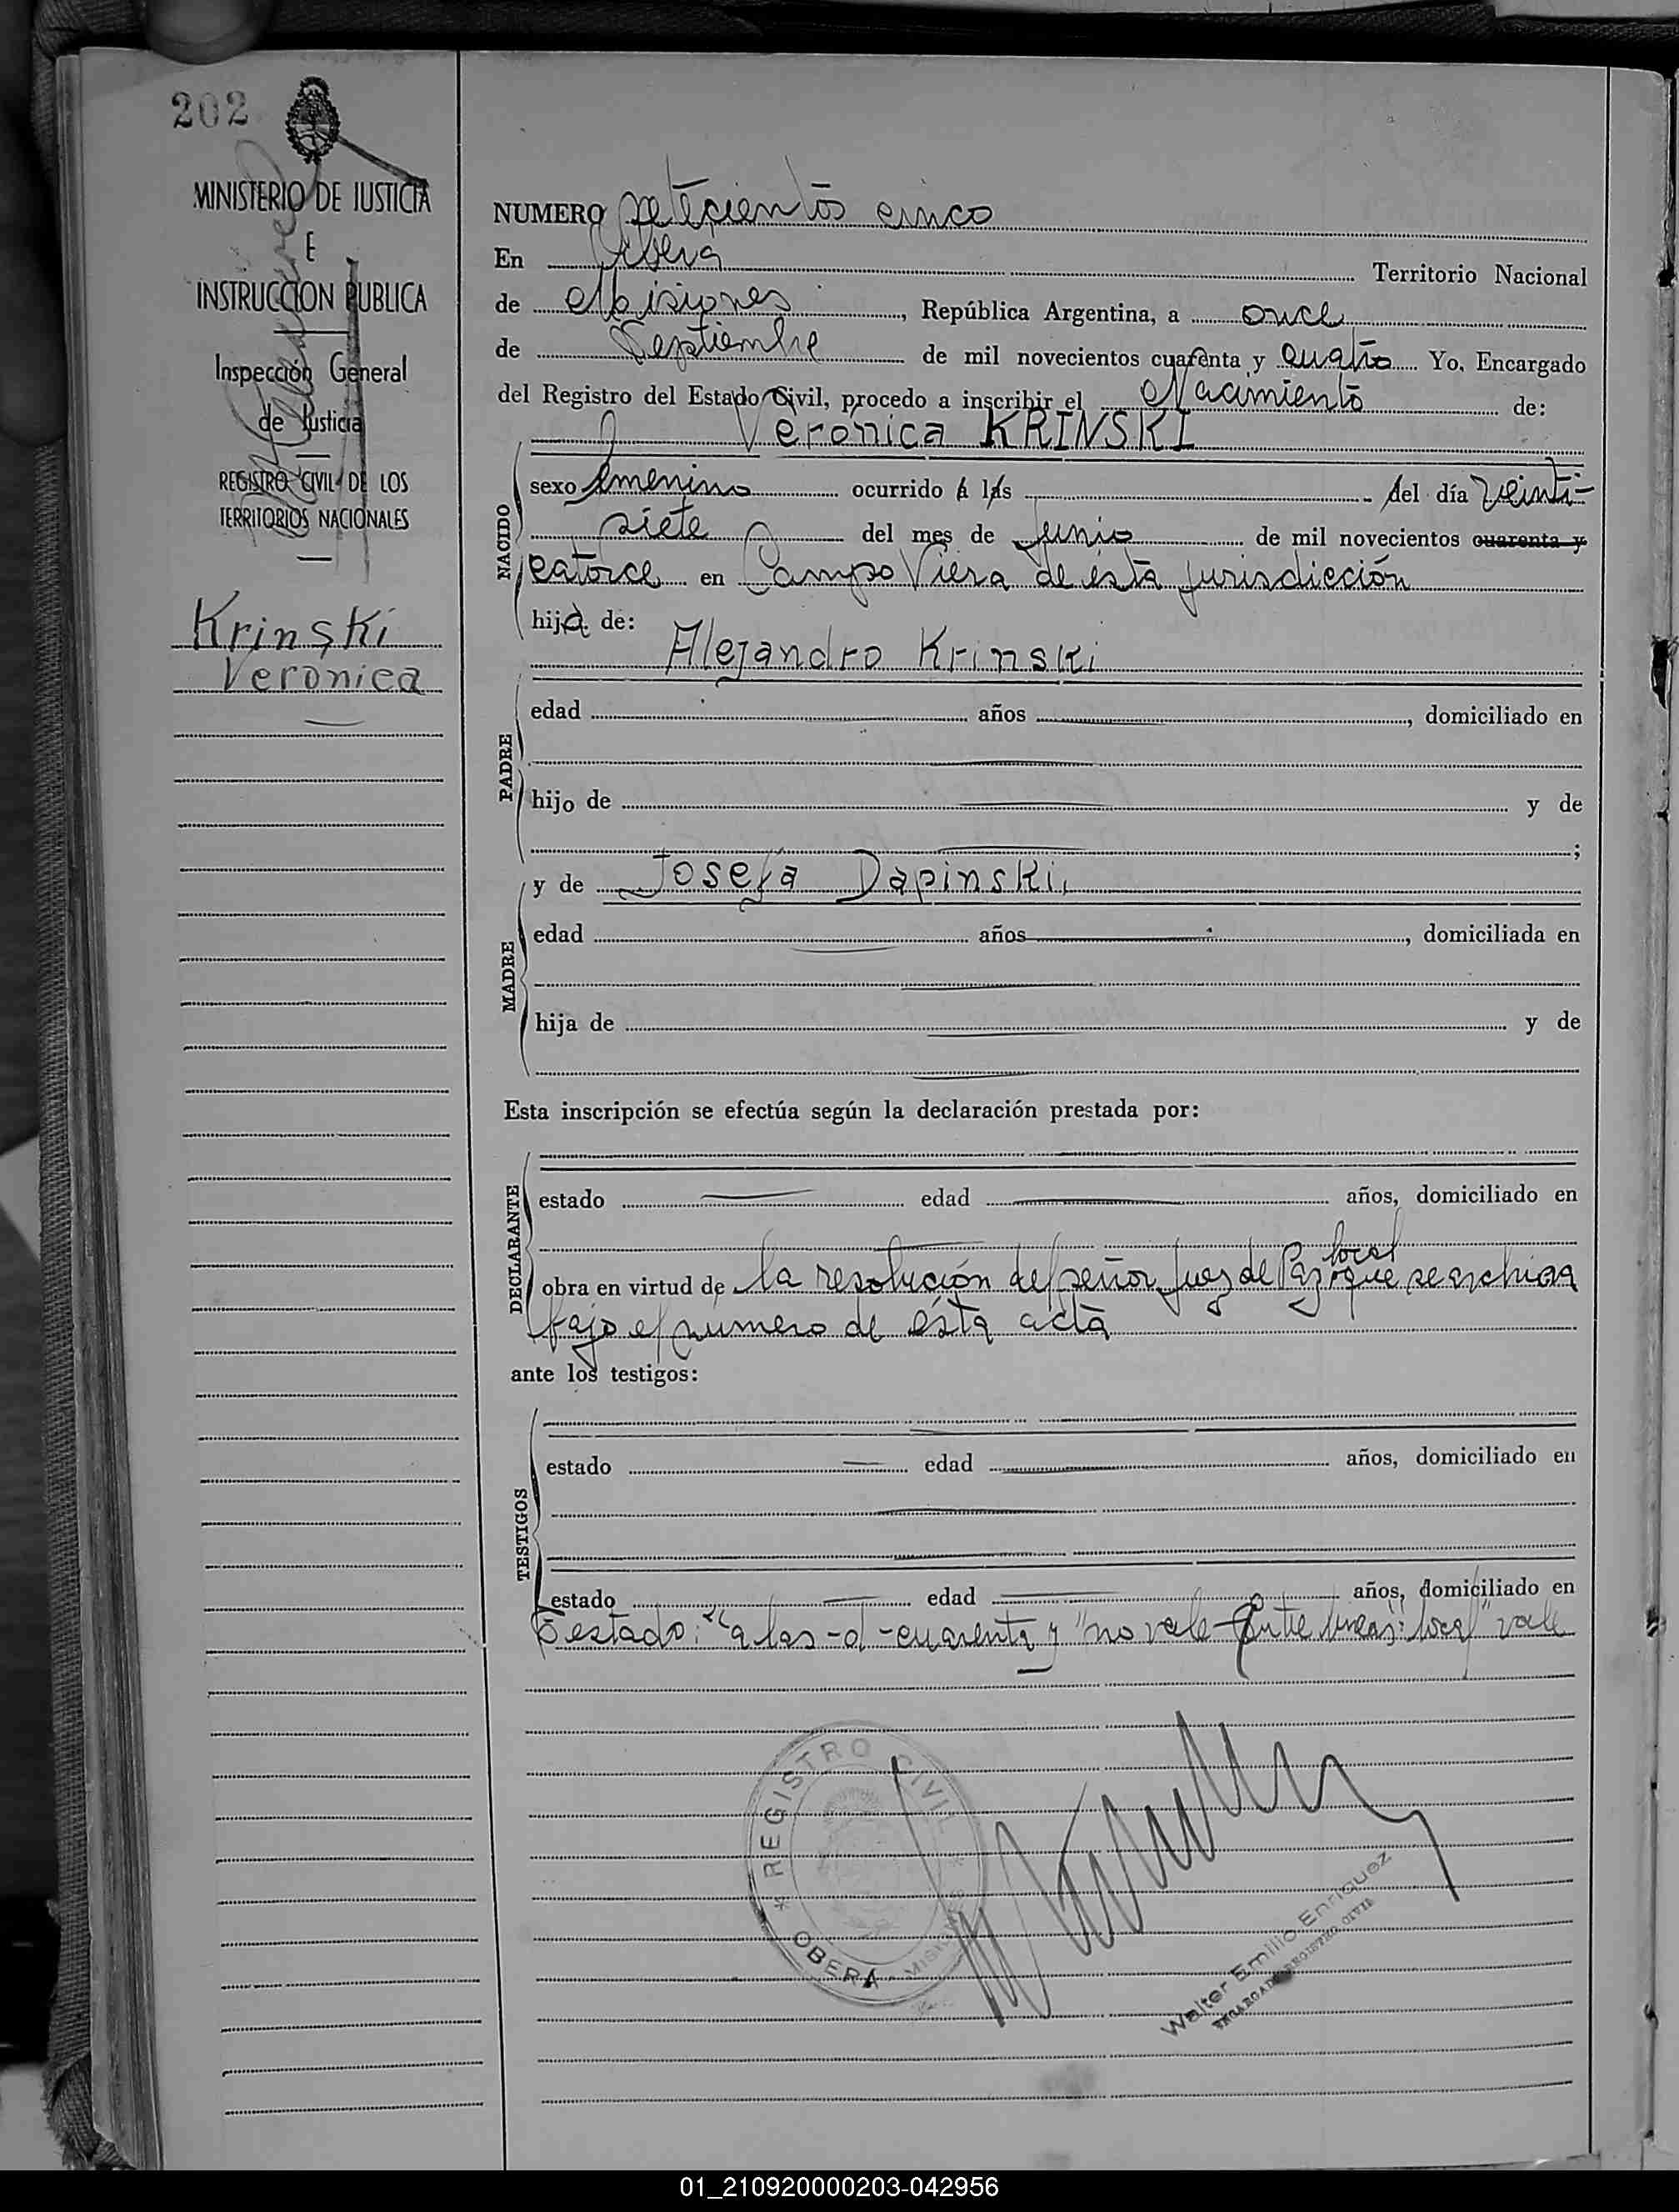 202
MINISTERIO DE JUSTICIA
E
INSTRUCCION PUBLICA
Inspección General
de Justicia
REGISTRO CIVIL DE LOS
TERRITORIOS NACIONALES
Krinski
Veronica
NUMERO setecientos cinco
En Oberá Territorio Nacional
de Misiones, República Argentina, a once
de Septiembre de mil novecientos cuarenta y cuatro Yo, Encargado
del Registro del Estado Civil, procedo a inscribir el Nacimiento de:
Verónica KRINSKI
NACIDO
sexo femenino ocurrido á las del día veinti-
siete del mes de Junio de mil novecientos cuarenta y
catorce en Campo Viera de ésta jurisdicción
hija de:
Alejandro Krinski
PADRE
edad años, domiciliado en
hijo de y de
;
y de Josefa Dapinski,
MADRE
edad años, domiciliada en
hija de y de
Esta inscripción se efectúa según la declaración prestada por:
DECLARANTE
estado edad años, domiciliado en
local
obra en virtud de la resolución del señor Juez de Paz que se archiva
bajo el numero de ésta acta
ante los testigos:
TESTIGOS
estado edad años, domiciliado en
estado edad años, domiciliado en
Testado: "a las -d -cuarenta y "no vale- Entre lineas: local" vale
REGISTRO CIVIL
OBERA - MISIONES
Walter Emilio Enriquez
ENCARGADO REGISTRO CIVIL
01_210920000203-042956